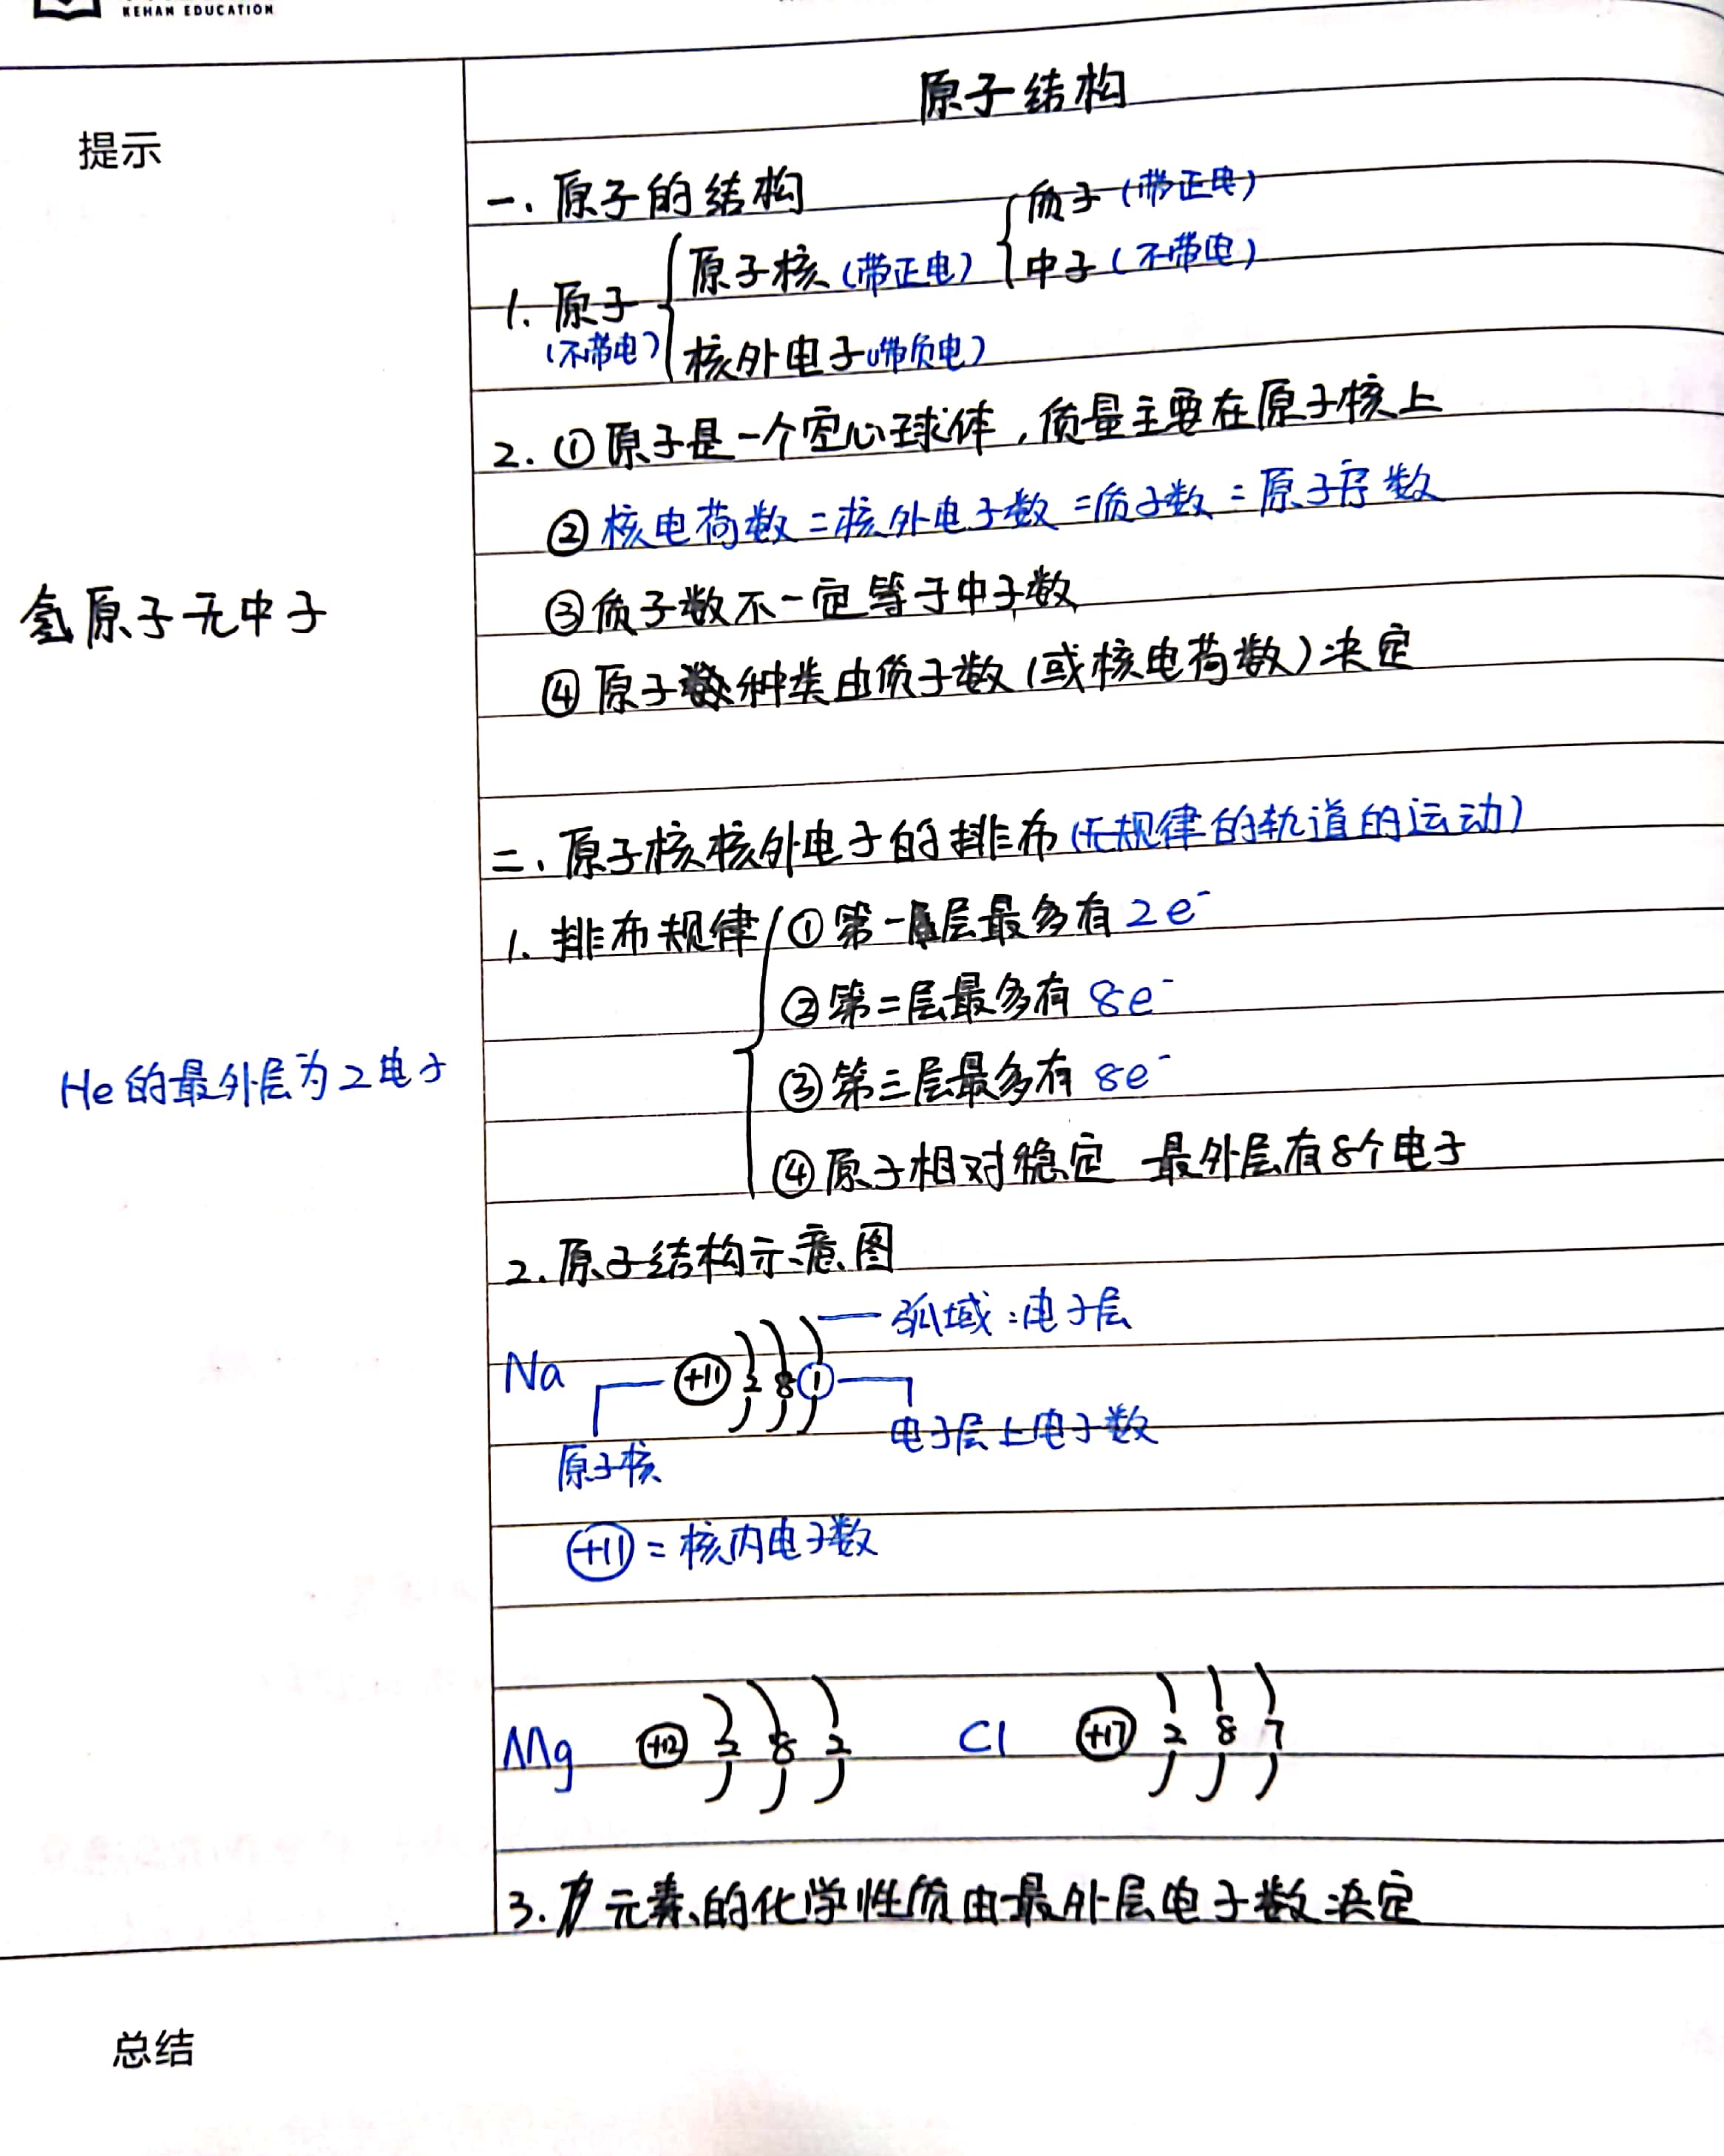 KEHAN EDUCATION
原子结构
提示
一、原子的结构
质子(带正电)
原子核(带正电)
中子(不带电)
1. 原子
(不带电)
核外电子(带负电)
2. ①原子是一个空心球体，质量主要在原子核上
②核电荷数=核外电子数=质子数=原子序数
氢原子无中子
③质子数不一定等于中子数
④原子种类由质子数(或核电荷数)决定
二、原子核核外电子的排布(无规律的轨道的运动)
1. 排布规律
①第一层最多有2e⁻
②第二层最多有8e⁻
He的最外层为2电子
③第三层最多有8e⁻
④原子相对稳定 最外层有8个电子
2. 原子结构示意图
弧域:电子层
Na +11 2 8 1
电子层上电子数
原子核
+11 = 核内电子数
Mg +12 2 8 2 Cl +17 2 8 7
3. 元素的化学性质由最外层电子数决定
总结